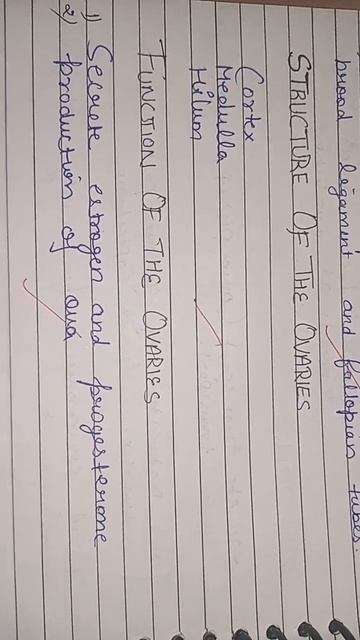 broad ligament and fallopian tubes.
STRUCTURE OF THE OVARIES
Cortex
Medulla
Hilum
FUNCTION OF THE OVARIES
1) Secrete estrogen and progesterone
2) production of ova